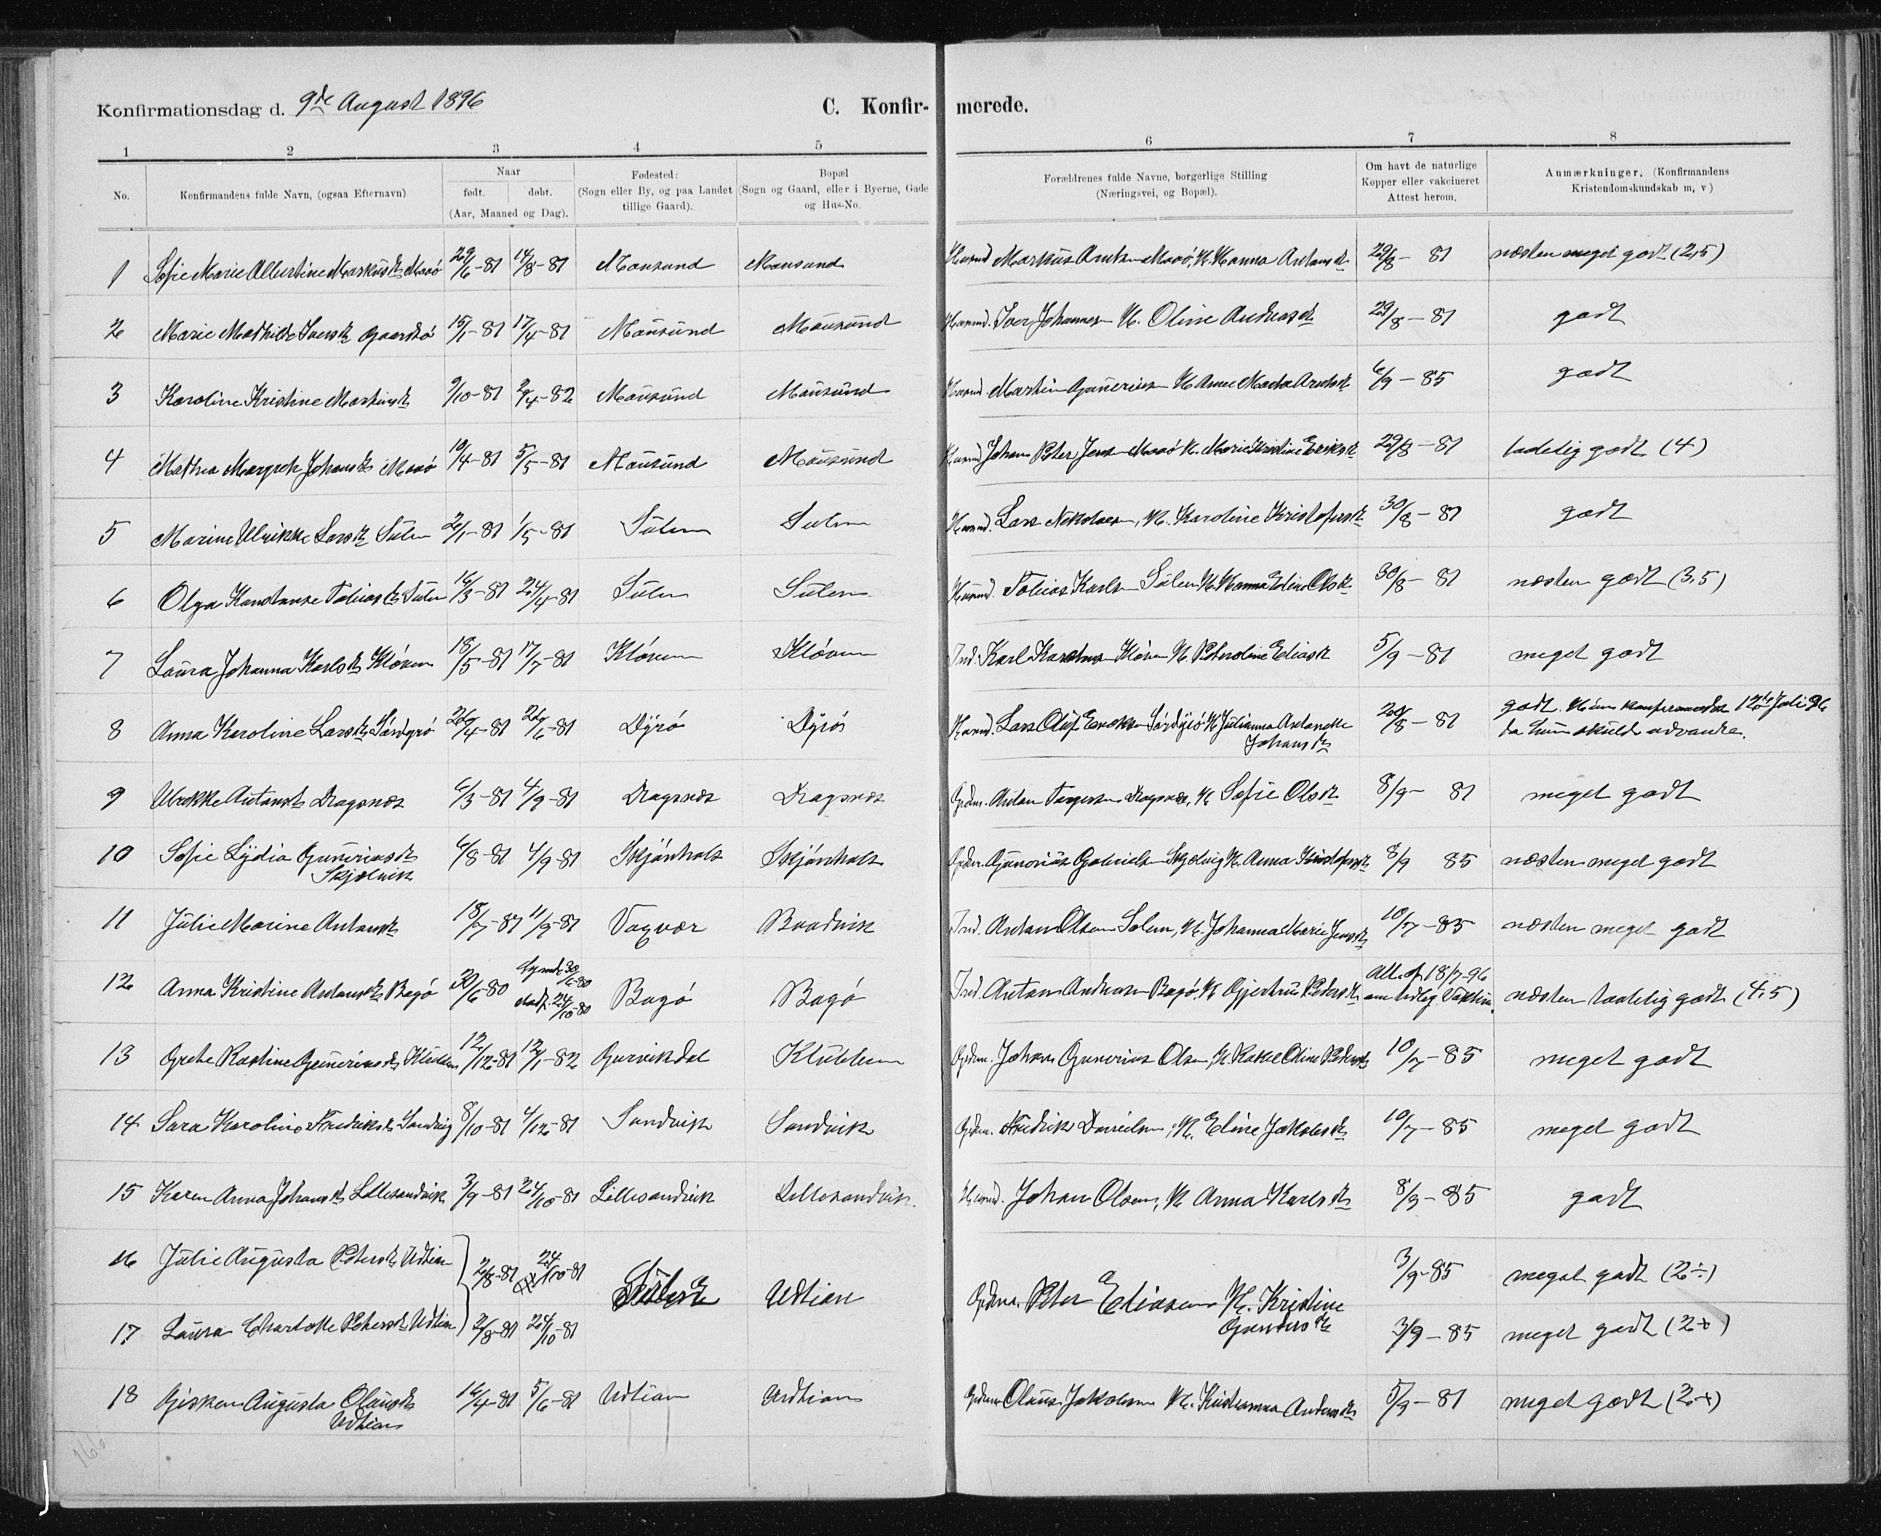 Konfirmationsdag d. 9de August 1896 C. Konfir- merede.
1 2 3 4 5 6 7 8
No. Konfirmandens fulde Navn, (ogsaa Efternavn) Naar født. døbt. (Aar, Maaned og Dag). Fødested: (Sogn eller By, og paa Landet tillige Gaard). Bopæl (Sogn og Gaard, eller i Byerne, Gade og Hus-No. Forældrenes fulde Navne, borgerlige Stilling (Næringsvei, og Bopæl). Om havt de naturlige Kopper eller vakcineret Attest herom. Anmærkninger. (Konfirmandens Kristendomskundskab m, v)
1 Sofie Marie Albertine Markusdt Maaø 29/6-81 14/8-81 Mausund Mausund Husmd Markus Arnts. Maaø, H. Hanna Antonsdt 29/8-81 næsten meget godt (2,5)
2 Marie Mathilde Iversdt Gaardsø 15/1-81 17/4-81 Mausund Mausund Husmd. Iver Johannes. H. Oline Andreasdt 29/8-81 godt
3 Karoline Kristine Martinsdt 9/10-81 2/4-82 Mausund Mausund Husmd Martin Gunerius. H. Anne Marta Arntsdt 6/9-85 godt
4 Mathea Margret Johansdt Maaø 10/4-81 5/5-81 Mausund Mausund Husmd Johan Peter Jens. Maaø H. Marie Kristine Eriksdt 29/8-81 tadelig godt (4)
5 Marine Ulrikke Larsdt Sulen 2/1-81 1/5-81 Sulen Sulen Husmd. Lars Nikolaisen, H. Karoline Kristofersdt 30/8-81 godt
6 Olga Konstanse Tobiasdt Sulen 16/3-81 24/4-81 Sulen Sulen Husmd. Tobias Karls. Sulen H. Hanna Edine Olsdt 30/8-81 næsten godt (3,5)
7 Laura Johanna Karlsdt Kløven 18/5-81 17/7-81 Kløven Kløven Ind. Karl Kløven H. Peteroline Eliasdt 5/9-81 meget godt
8 Anna Karoline Larsdt Sørdyrø 26/4-81 26/6-81 Dyrø Dyrø Husmd. Lars Oluf Eriksen Sørdyrø H. Julianna Antonette 29/8-81 godt. Hun konfirmeredes 12te Juli 96
Johansdt da hun skulde udvandre.
9 Ulrikke Antonsdt Dragsnæs 6/3-81 4/9-81 Dragsnæs Dragsnæs Gdm. Anton Torgersen Dragsnæs, H. Sofie Olsdt 8/9-81 meget godt
10 Sofie Lydia Guneriusdt 6/8-81 4/9-81 Skjønhals Skjønhals Gdm. Gunerius Gabriels. H. Anna Kristofersdt 8/9 85 næsten meget godt
Skjelvik
11 Julie Marine Antonsdt 18/7-81 11/9-81 Vagvær Baadvik Ind. Anton Olsen Solem, H. Johanna Marie Jensdt 10/7-85 næsten meget godt
12 Anna Kristine Antonsdt Bagø 30/6-80 30/6-80 24/10-80 Bagø Bagø Ind. Anton Andreas. Bagø, H. Gjertrud Petersdt Att. af 18/7-96 næsten taadelig godt (4,5)
om tidlig Vaktin.
13 Grete Rastine Guneriusdt Klubben 12/12-81 12/1-82 Gurvikdal Klubben Gdm. Johan Gunerius Olsen, H. Oline Pedersdt 10/7-85 meget godt
14 Sara Karoline Fredriksdt Sandvig 8/10-81 4/12-81 Sandvik Sandvik Gdm. Fredrik Danielsen, H. Eline Jakobsdt 10/7-85 meget godt
15 Karen Anna Johansdt Lillesandvik 3/9-81 24/10-81 Lillesandvik Lillesandvik. Husmd. Johan Olsen, H. Anna Karlsdt 8/9-85 godt
16 Julie Augusta Petersdt Udtian 2/8-81 24/10-81 Udtian Gdm. Peter Eliasen H. Kristine 3/9-85 meget godt (2÷)
17 Laura Charlotte Petersdt Udtian 2/8-81 24/10-81 Gundersdt 3/9-85 meget godt (2+)
18 Gisken Augusta Olausdt 16/4-81 5/6-81 Udtian Udtian Gdm. Olaus Jakobsen H. Kristianna Andersdt 5/9-81 meget godt (2+)
Udtian
166